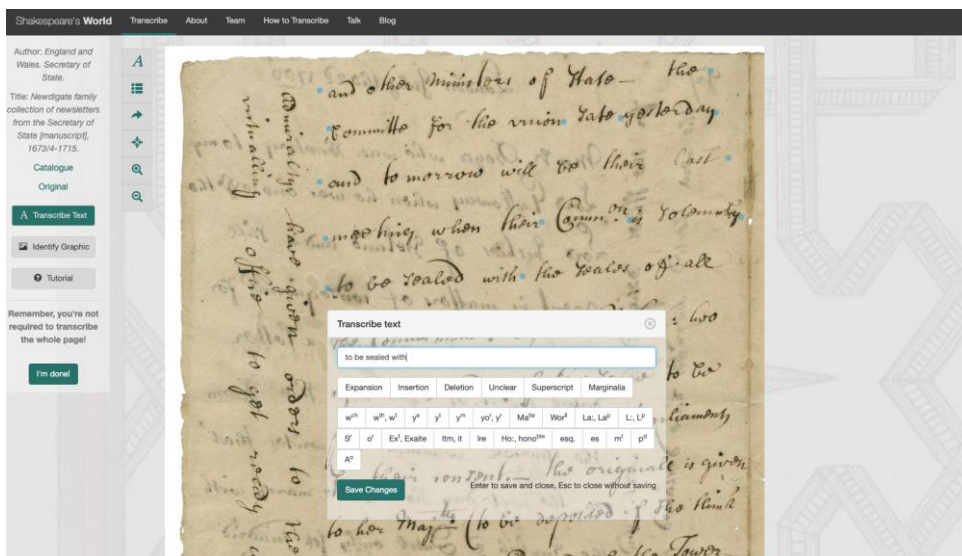 Shakespeare's World Transcribe About Team How to Transcribe Talk Blog
Author: England and
Wales. Secretary of
State.
Title: Newdigate family
collection of newsletters
from the Secretary of
State [manuscript],
1673/4-1715.
Catalogue
Original
A Transcribe Text
Identify Graphic
Tutorial
Remember, you're not
required to transcribe
the whole page!
I'm done!
A
and other ministers of State — the
Committe for the union sate yesterday
and to morrow will be their last
meeting when their Comm.ons solemnly
to be sealed with the seales of all
two
to be
liaments
their consent — the originale is given
to her Maj.tie (to be deposited if she think
the Tower
admiraltye have given orders to the
victualling office to get ready
Transcribe text
to be sealed with
Expansion Insertion Deletion Unclear Superscript Marginalia
wch wth, wt ye yt ym yor, yr Matie Worll La:, Lap L:, Lp
Sr or Ext, Exaite Itm, it Ire Ho:, honoble esq. es mt pd
Ao
Save Changes Enter to save and close, Esc to close without saving